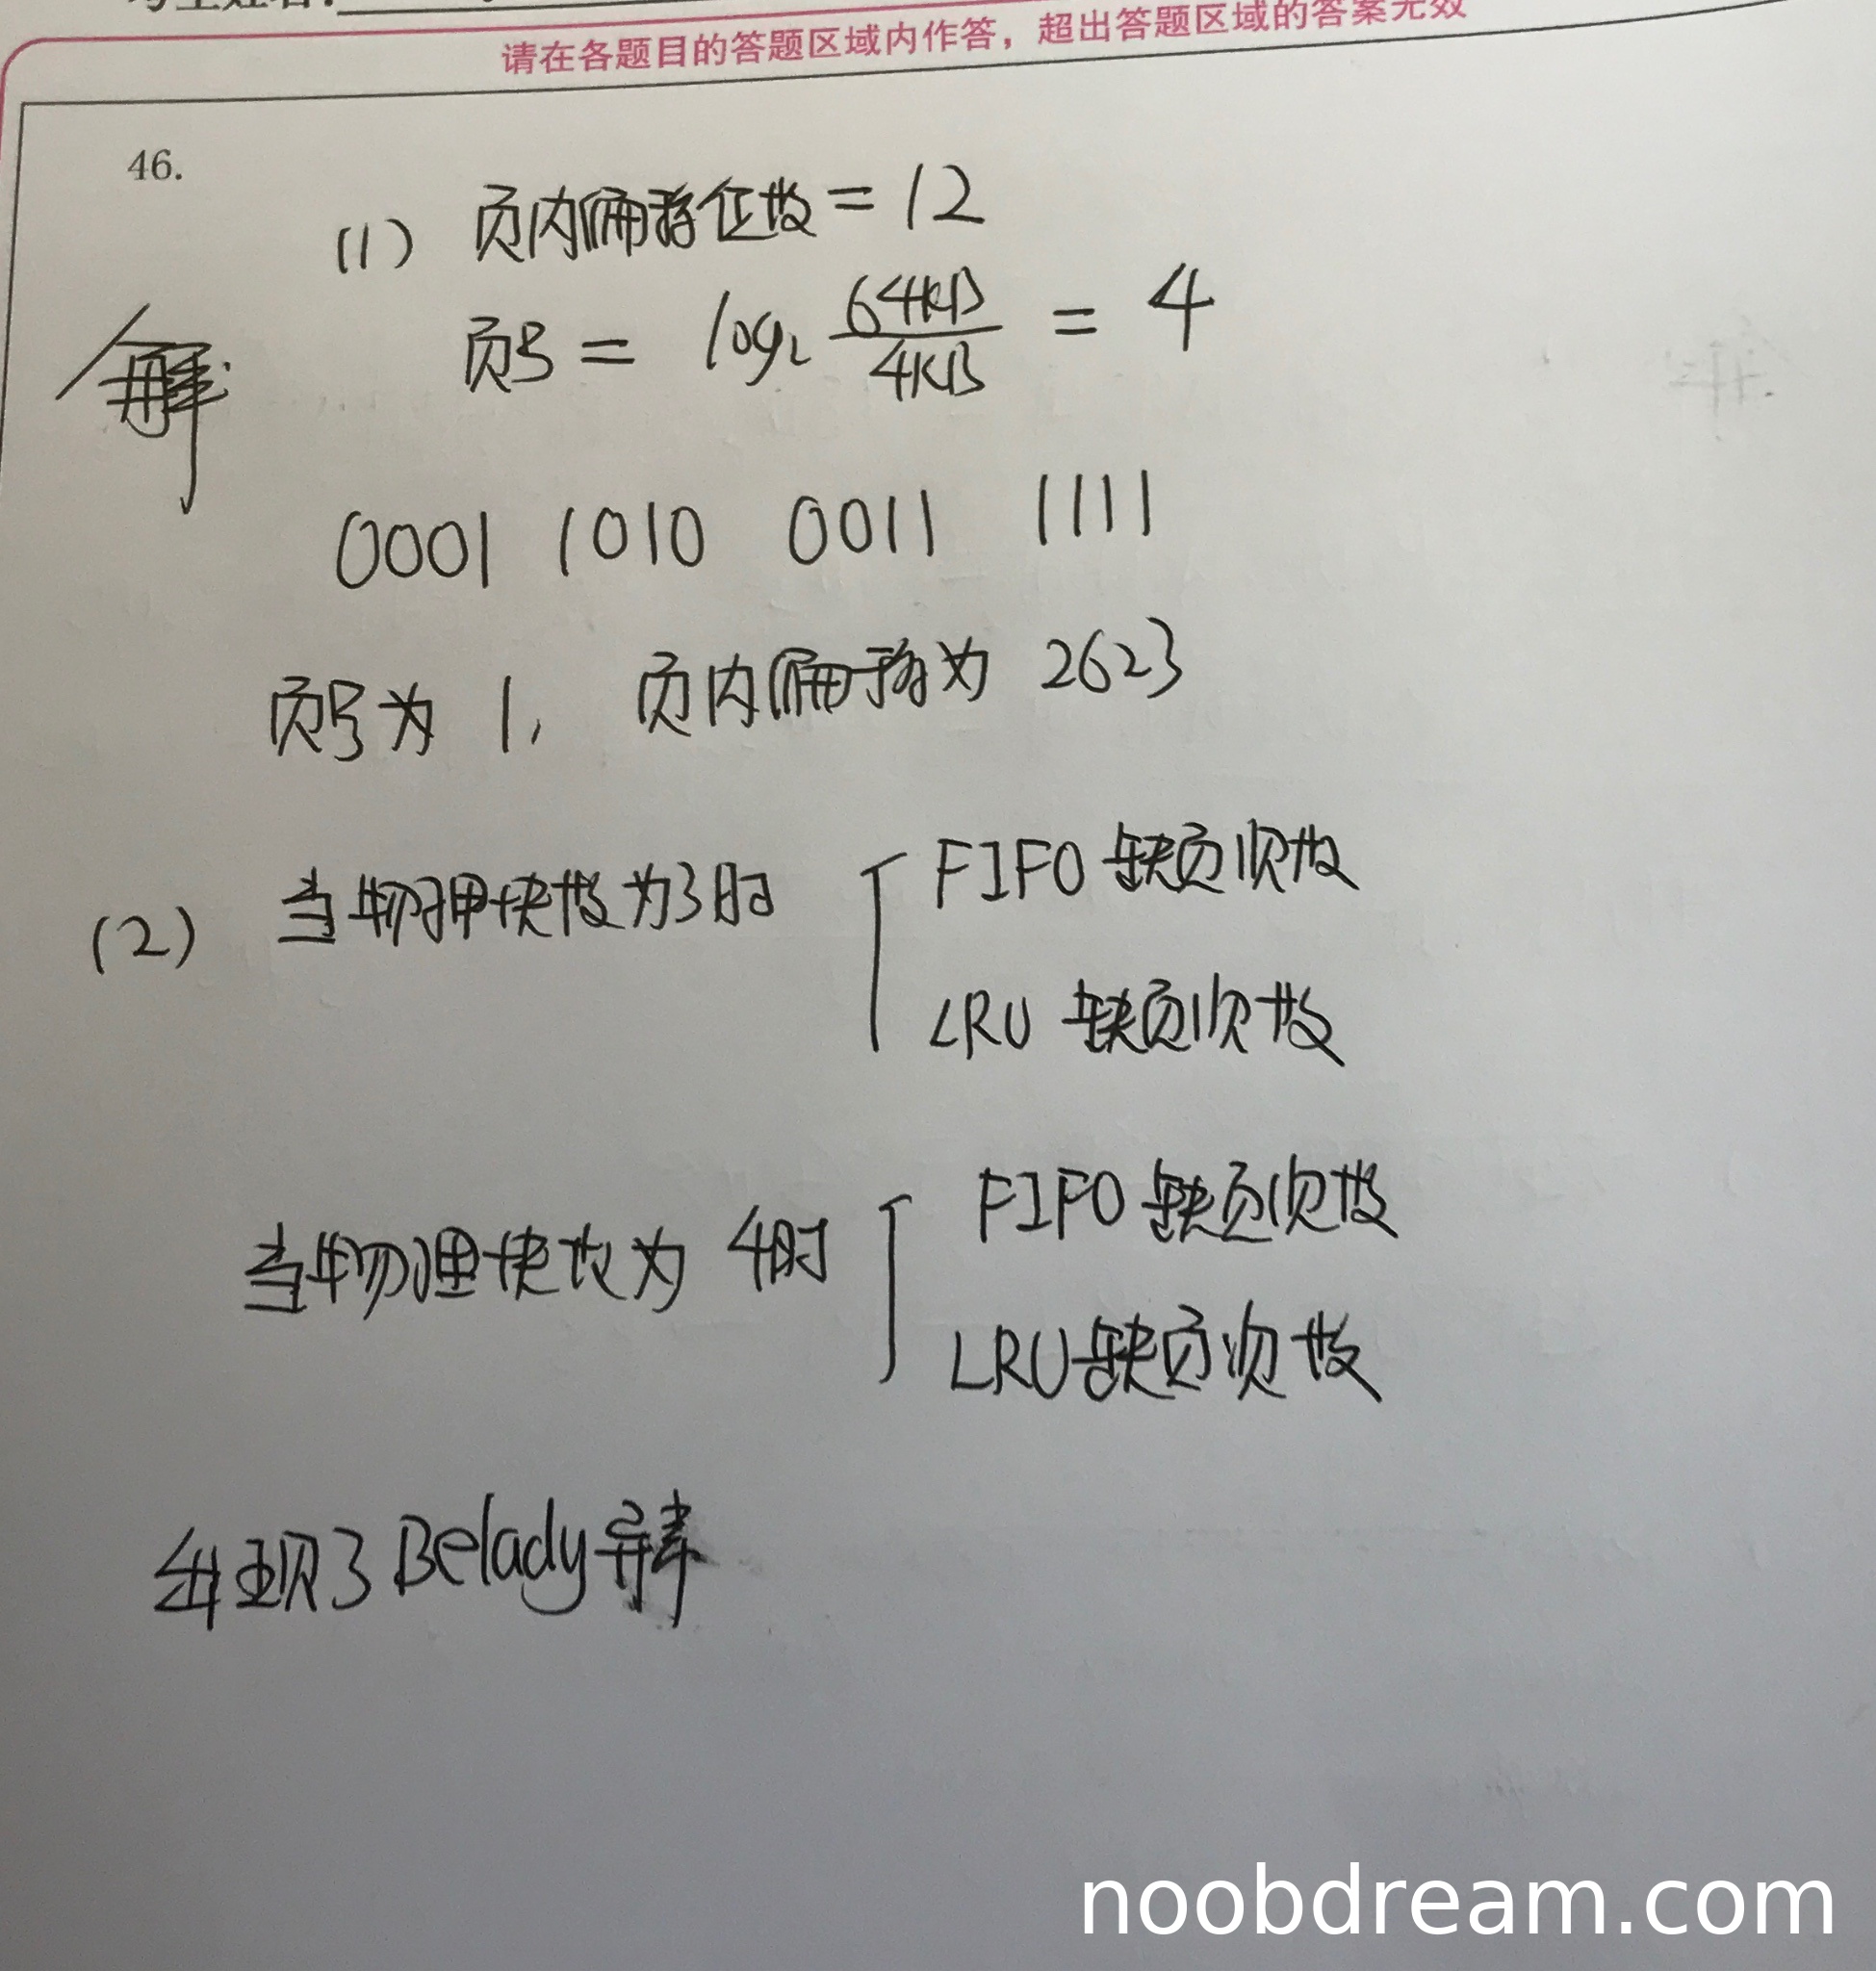 请在各题目的答题区域内作答，超出答题区域的答案无效
46.
(1) 页内偏移位数 = 12
解
页号 = log₂ 64KB/4KB = 4
0001 1010 0011 1111
页号为 1, 页内偏移为 2623
(2) 当物理块数为3时
FIFO 缺页次数
LRU 缺页次数
当物理块数为 4时
FIFO 缺页次数
LRU 缺页次数
出现了 Belady 异
noobdream.com